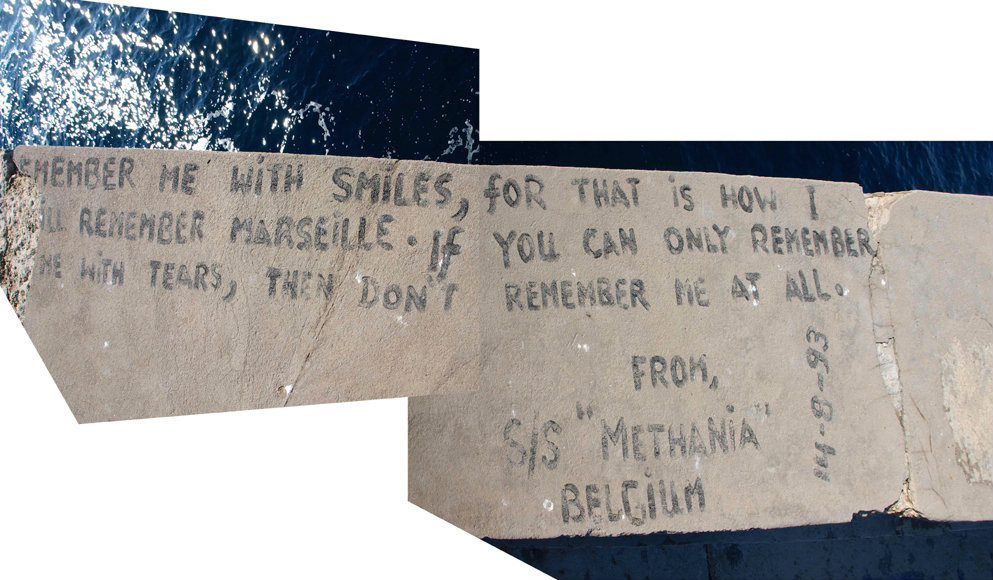 EMEMBER ME WiTH SMiLES, fOR THAT iS HOW I
iLL REMEMBER MARSEiLLE. If YOU CAN ONLY REMEMBER
ME WiTH TEARS, THEN DON'T REMEMBER ME AT ALL.
FROM,
S/S "METHANiA"
BELGiUM
14-8-93